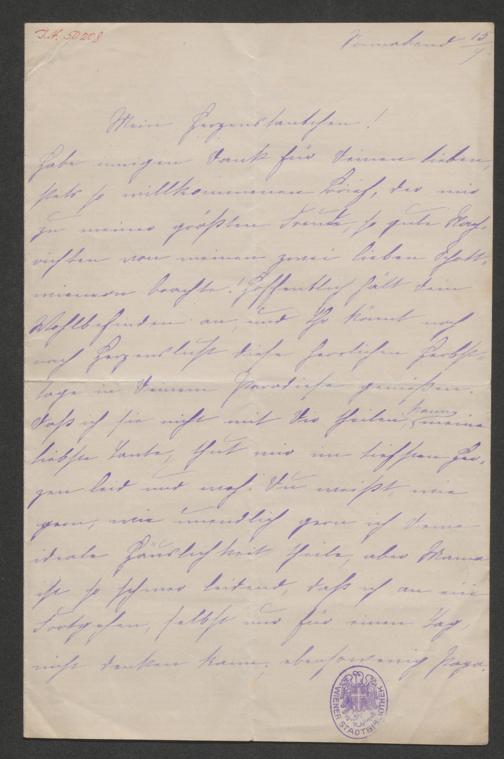 J.N. 50208
Sonnabend 13/9
Mein Herzenstantchen!
Habe innigen Dank für Deinen lieben,
stets so willkommenen Brief, der mir
zu meiner größten Freude, so gute Nach-
richten von meinen zwei lieben Schott-
wienern brachte! Hoffentlich hält Dein
Wohlbefinden an, und Ihr könnt noch
nach Herzenslust diese herrlichen Herbst-
tage in Deinem Paradiese genießen.
Daß ich sie nicht mit Dir theilen kann, meine
liebste Tante, thut mir im tiefsten Her-
zen leid und weh. Du weißt wie
gern, wie unendlich gern ich Deine
ideale Häuslichkeit theile, aber Mama
ist so schwer leidend, daß ich an ein
Fortgehen, selbst nur für einen Tag,
nicht denken kann, ebensowenig Papa.
WIENER STADTBIBLIOTHEK